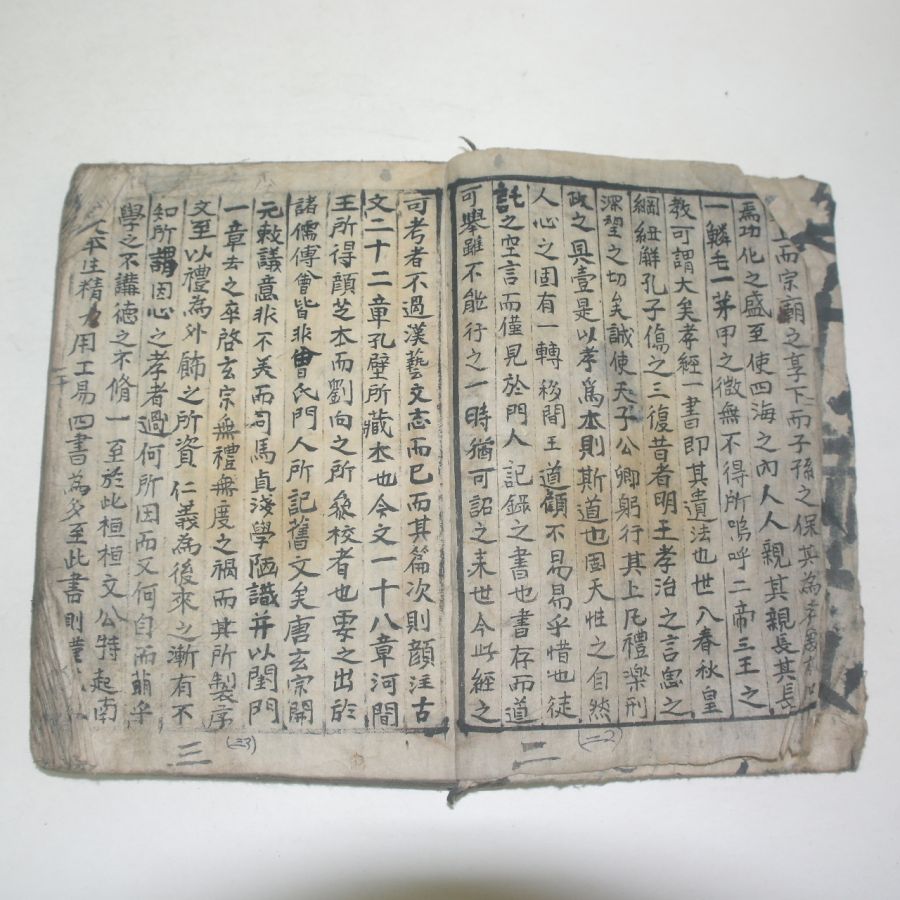 上而宗廟之享下而子孫之保其為孝
焉功化之盛至使四海之內人人親其親長其長
一鱗毛一茅甲之微無不得所嗚呼二帝三王之
教可謂大矣孝經一書即其遺法也世入春秋皇
綱紐解孔子傷之三復昔者明王孝治之言思之
深望之切矣誠使天子公卿躬行其上凡禮樂刑
政之具壹是以孝爲本則斯道也固天性之自然
人心之固有一轉移間王道顧不易易乎惜也徒
託之空言而僅見於門人記錄之書也書存而道
可舉雖不能行之一時猶可詔之来世今此經之
二
(22)
可考者不過漢藝文志而已而其篇次則顔注古
文二十二章孔壁所藏本也今文一十八章河間
王所得顔芝本而劉向之所叅校者也要之出於
諸儒傅會皆非曾氏門人所記舊文矣唐玄宗開
元敕議意非不美而司馬貞淺學陋識并以閨門
一章去之卒啓玄宗無禮無度之禍而其所製序
文至以禮為外飾之所資仁義為後來之漸有不
知所謂因心之孝者過何所因而又何自而萌乎
學之不講德之不脩一至於此桓桓文公特起南
平生精力用工易四書為多至此書則
三
(23)